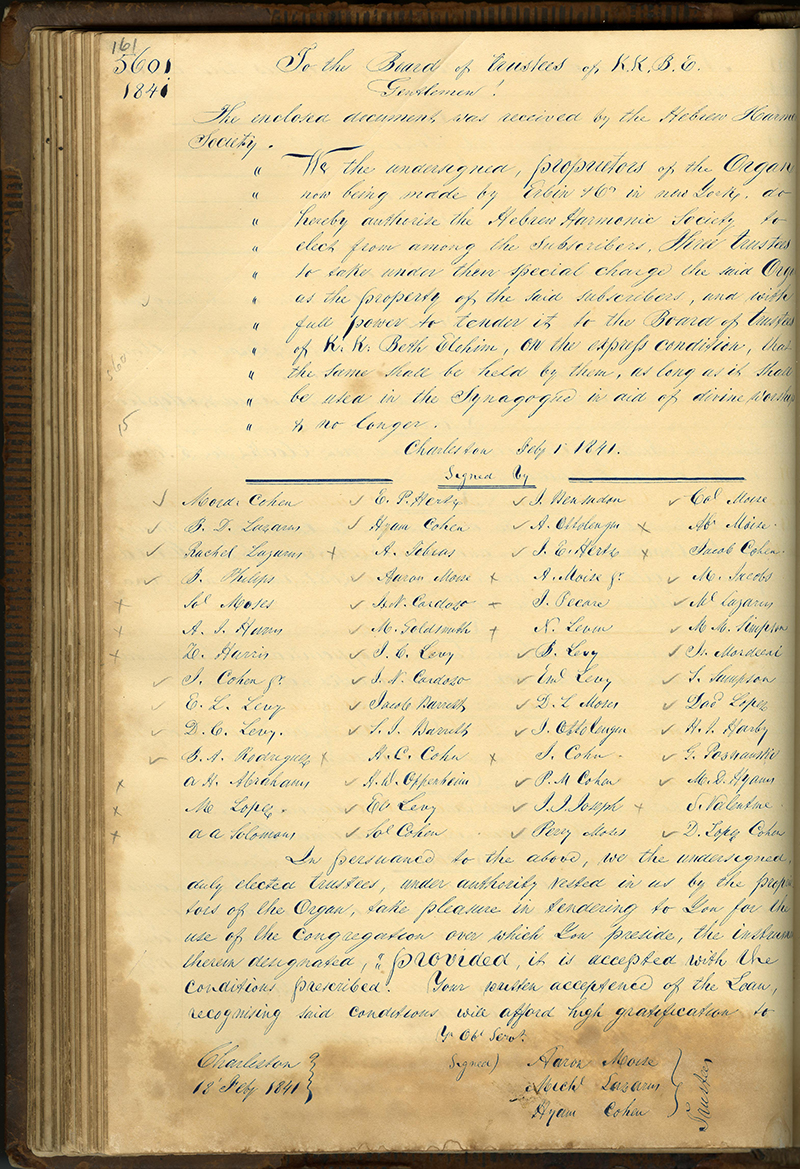 161
5601
1841
To the Board of trustees of K.K.B.E.
Gentlemen!
The enclosed document, was received by the Hebrew Harmo
Society.
" We the undersigned, proprietors of the Organ
" now being made by Erbin & Co in new York, do
" hereby authorise the Hebrew Harmonic Society to
" elect from among the Subscribers, three trustees
" to take under their special charge the said Org
" as the property of the said subscribers, and with
" full power to tender it to the Board of trustees
" of K.K. Beth Elohim, on the express condition, that
" the same shall be held by them, as long as it shall
" be used in the Synagogue in aid of divine worship
" & no longer.
15
Charleston Feby 1 1841.
Signed by
Mord. Cohen E. P. Hertz J. Bensadon Col Moise
B. D. Lazarus Hyam Cohen A. Ottolengui Ab. Moise
Rachel Lazarus A. Tobias J. E. Hertz Jacob Cohen
B. Philips Aaron Moise A. Moise Jr. M. Jacobs
Sol Moses I. N. Cardozo J. Pecare Ml Lazarus
A. J. Harris M. Goldsmith N. Levin M. M. Simpson
Z. Harris J. C. Levy B. Levy Is. Mordecai
J. Cohen Jr. J. N. Cardozo Eml Levy S. Sampson
E. L. Levy Jacob Barrett D. L Moses Dad Lopez
D. C. Levy. S. J. Barrett J. Ottolengui H. J. Harby
B. A. Rodriguez A. C. Cohn J. Cohn G. Poznanski
A H. Abrahams H. W. Oppenheim P. M Cohen M. D. Hyams
M. Lopez El Levy J. J. Joseph S. Valentine
A A Solomons Sol Cohen Perry Moses D. Lopez Cohen
In persuance to the above, we the undersigned,
duly elected trustees, under authority vested in us by the propr
tors of the Organ, take pleasure in tendering to You for the
use of the Congregation over which You preside, the instrum
therein designated, "provided, it is accepted with the
conditions prescribed. Your written acceptence of the Loan,
recognising said conditions will afford high gratification to
Yr Obt Servt.
Charleston Signed) Aaron Moise
12 Feby 1841 Michl Lazarus
Hyam Cohen
Trustees